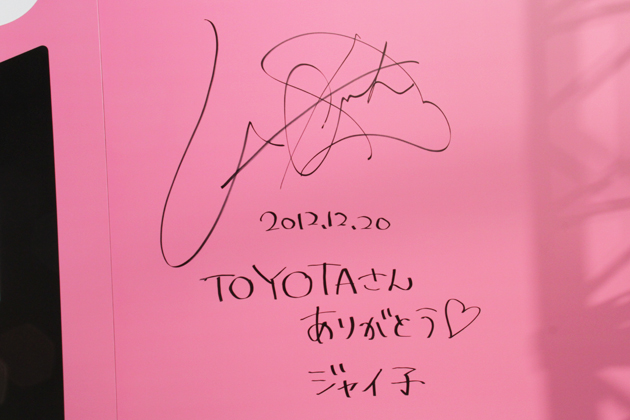 2012.12.20
TOYOTAさん
ありがとう♡
ジャイ子